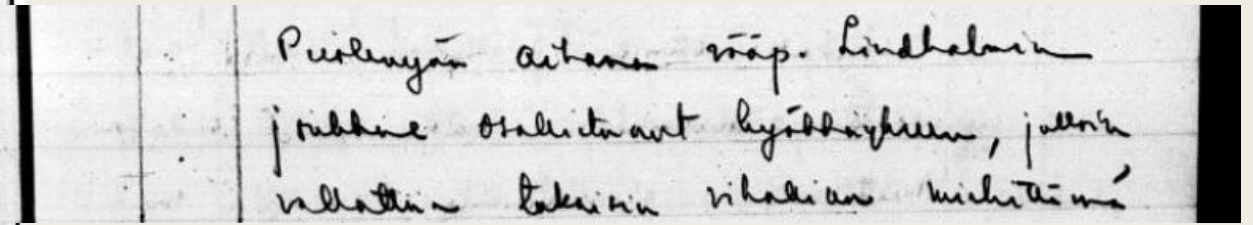 Puolenyön aikana vääp. Lindholmin
joukkue osallistunut hyökkäykseen, jolloin
vallattiin takaisin vihollisen miehittämä